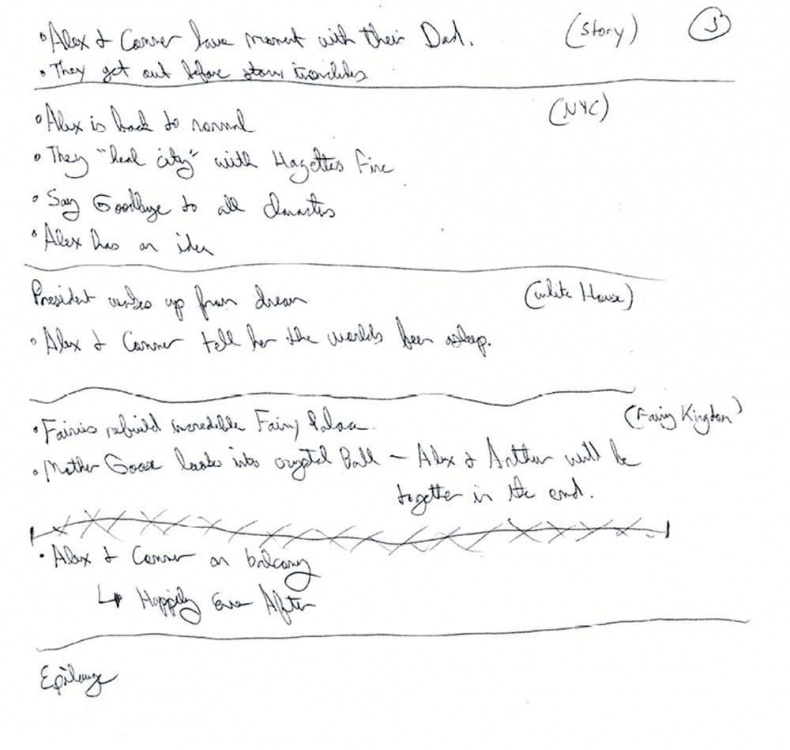 • Alex & Conner have moment with their Dad. (Story) 5
• They get out before story
• Alex is back to normal (NYC)
• They "heal city" with Hagettas Fire
• Say Goodbye to all characters
• Alex has an idea
President wakes up from dream (White House)
• Alex & Conner tell her the worlds been asleep.
• Fairies rebuild incredible Fairy Palace. (Fairy Kingdom)
• Mother Goose looks into crystal Ball – Alex & Arthur will be
together in the end.
• Alex & Conner on balcony
↳ Happily Ever After
Epilouge